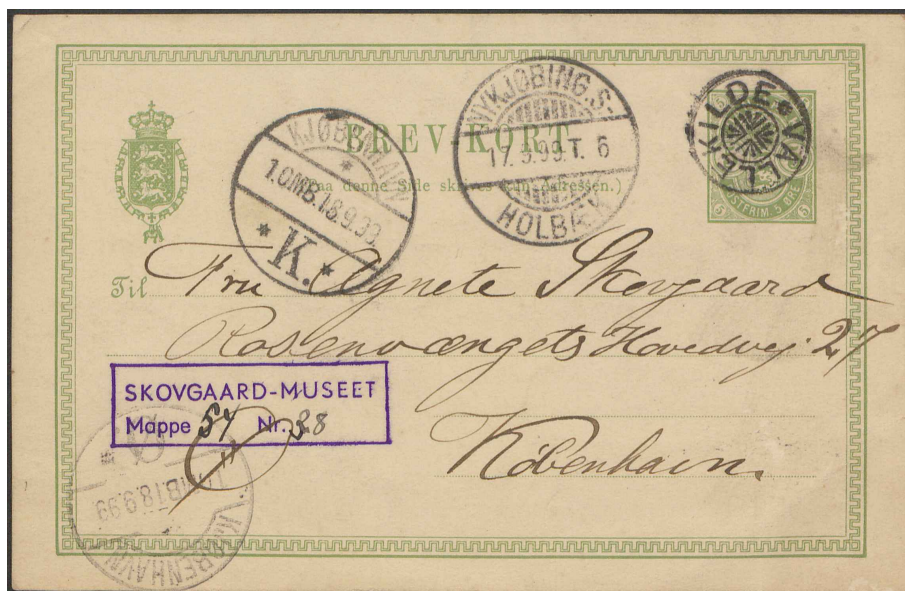 BREVKORT
(Paa denne Side skrives kun Adressen.)
KJØBENHAVN
1.OMB.18.9.99.
K.
NYKJØBING.S-
17.9.99.T.6
HOLBÆK
VALLEKILDE
POSTFRIM. 5 ØRE
5 5
Til Fru Agnete Skovgaard
Rosenvængets Hovedvej 27
København.
SKOVGAARD-MUSEET
Mappe 54 Nr. 38
1.OMB.18.9.99
KJØBENHAVN